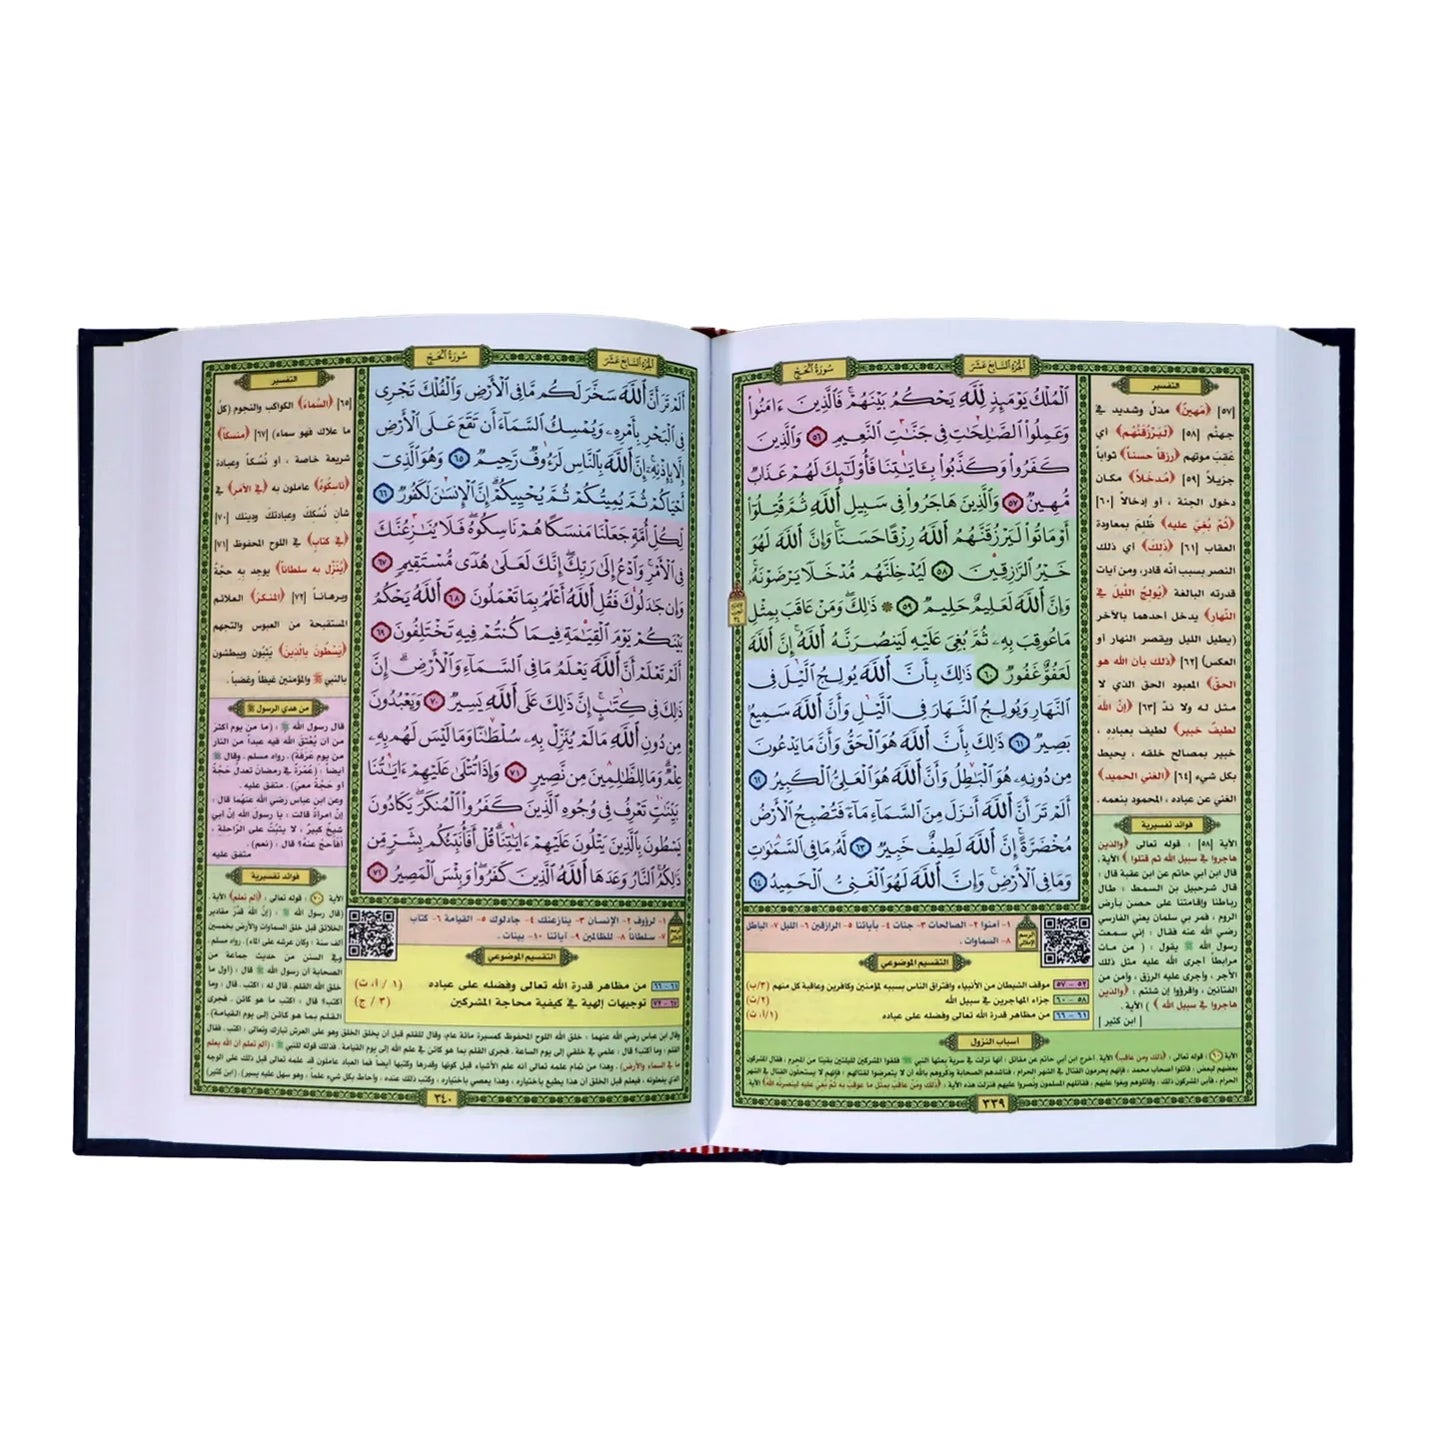 الجزء السابع عشر
سورة الحج
ٱلْمُلْكُ يَوْمَئِذٍ لِّلَّهِ يَحْكُمُ بَيْنَهُمْ ۚ فَٱلَّذِينَ ءَامَنُوا۟
وَعَمِلُوا۟ ٱلصَّـٰلِحَـٰتِ فِى جَنَّـٰتِ ٱلنَّعِيمِ ٥٦ وَٱلَّذِينَ
كَفَرُوا۟ وَكَذَّبُوا۟ بِـَٔايَـٰتِنَا فَأُو۟لَـٰٓئِكَ لَهُمْ عَذَابٌ
مُّهِينٌ ٥٧ وَٱلَّذِينَ هَاجَرُوا۟ فِى سَبِيلِ ٱللَّهِ ثُمَّ قُتِلُوٓا۟
أَوْ مَاتُوا۟ لَيَرْزُقَنَّهُمُ ٱللَّهُ رِزْقًا حَسَنًا ۚ وَإِنَّ ٱللَّهَ لَهُوَ
خَيْرُ ٱلرَّٰزِقِينَ ٥٨ لَيُدْخِلَنَّهُم مُّدْخَلًا يَرْضَوْنَهُۥ ۗ
وَإِنَّ ٱللَّهَ لَعَلِيمٌ حَلِيمٌ ٥٩ ۞ ذَٰلِكَ وَمَنْ عَاقَبَ بِمِثْلِ
مَا عُوقِبَ بِهِۦ ثُمَّ بُغِىَ عَلَيْهِ لَيَنصُرَنَّهُ ٱللَّهُ ۗ إِنَّ ٱللَّهَ
لَعَفُوٌّ غَفُورٌ ٦٠ ذَٰلِكَ بِأَنَّ ٱللَّهَ يُولِجُ ٱلَّيْلَ فِى
ٱلنَّهَارِ وَيُولِجُ ٱلنَّهَارَ فِى ٱلَّيْلِ وَأَنَّ ٱللَّهَ سَمِيعٌۢ
بَصِيرٌ ٦١ ذَٰلِكَ بِأَنَّ ٱللَّهَ هُوَ ٱلْحَقُّ وَأَنَّ مَا يَدْعُونَ
مِن دُونِهِۦ هُوَ ٱلْبَـٰطِلُ وَأَنَّ ٱللَّهَ هُوَ ٱلْعَلِىُّ ٱلْكَبِيرُ ٦٢
أَلَمْ تَرَ أَنَّ ٱللَّهَ أَنزَلَ مِنَ ٱلسَّمَآءِ مَآءً فَتُصْبِحُ ٱلْأَرْضُ
مُخْضَرَّةً ۗ إِنَّ ٱللَّهَ لَطِيفٌ خَبِيرٌ ٦٣ لَّهُۥ مَا فِى ٱلسَّمَـٰوَٰتِ
وَمَا فِى ٱلْأَرْضِ ۗ وَإِنَّ ٱللَّهَ لَهُوَ ٱلْغَنِىُّ ٱلْحَمِيدُ ٦٤
التفسير
[٥٧] ﴿مهين﴾ مذل وشديد في
جهنم [٥٨] ﴿ليرزقنهم﴾ أي
عقب موتهم ﴿رزقاً حسناً﴾ ثواباً
جزيلاً [٥٩] ﴿مدخلاً﴾ مكان
دخول الجنة ، أو إدخالاً [٦٠]
﴿ثم بغي عليه﴾ ظلم بمعاودة
العقاب [٦١] ﴿ذلك﴾ أي ذلك
النصر بسبب أنه قادر، ومن آيات
قدرته البالغة ﴿يولج الليل في
النهار﴾ يدخل أحدهما بالآخر
(يطيل الليل ويقصر النهار أو
العكس) [٦٢] ﴿ذلك بأن الله هو
الحق﴾ المعبود الحق الذي لا
مثل له ولا ند [٦٣] ﴿إن الله
لطيف خبير﴾ لطيف بعباده ،
خبير بمصالح خلقه ، يحيط
بكل شيء [٦٤] ﴿الغني الحميد﴾
الغني عن عباده ، المحمود بنعمه .
فوائد تفسيرية
الآية [٥٨] : قوله تعالى ﴿والذين
هاجروا في سبيل الله ثم قتلوا﴾ الآية .
قال ابن أبي حاتم عن ابن عقبة قال :
قال شرحبيل بن السمط: طال
رباطنا وإقامتنا على حصن بأرض
الروم ، فمر بي سلمان يعني الفارسي
رضي الله عنه فقال : إني سمعت
رسول الله ﷺ يقول : ( من مات
مرابطاً أجرى الله عليه مثل ذلك
الأجر ، وأجرى عليه الرزق ، وأمن من
الفتانين ، واقرؤوا إن شئتم ، ﴿والذين
هاجروا في سبيل الله ﴾ ) الآية .
[ ابن كثير ]
١- آمنوا ٢- الصالحات ٣- جنات ٤- بآياتنا ٥- الرازقين ٦- الليل ٧- الباطل
٨- السماوات .
التقسيم الموضوعي
٥٢ - ٥٧ موقف الشيطان من الأنبياء وافتراق الناس بسببه لمؤمنين وكافرين وعاقبة كل منهم (٣/ب)
٥٨ - ٦٠ جزاء المهاجرين في سبيل الله (٢/ت)
٦١ - ٦٦ من مظاهر قدرة الله تعالى وفضله على عباده (١/أ، ث)
أسباب النزول
٣٣٩
سورة الحج
الجزء السابع عشر
أَلَمْ تَرَ أَنَّ ٱللَّهَ سَخَّرَ لَكُم مَّا فِى ٱلْأَرْضِ وَٱلْفُلْكَ تَجْرِى
فِى ٱلْبَحْرِ بِأَمْرِهِۦ وَيُمْسِكُ ٱلسَّمَآءَ أَن تَقَعَ عَلَى ٱلْأَرْضِ
إِلَّا بِإِذْنِهِۦٓ ۗ إِنَّ ٱللَّهَ بِٱلنَّاسِ لَرَءُوفٌ رَّحِيمٌ ٦٥ وَهُوَ ٱلَّذِىٓ
أَحْيَاكُمْ ثُمَّ يُمِيتُكُمْ ثُمَّ يُحْيِيكُمْ ۗ إِنَّ ٱلْإِنسَـٰنَ لَكَفُورٌ ٦٦
لِّكُلِّ أُمَّةٍ جَعَلْنَا مَنسَكًا هُمْ نَاسِكُوهُ ۖ فَلَا يُنَـٰزِعُنَّكَ
فِى ٱلْأَمْرِ ۚ وَٱدْعُ إِلَىٰ رَبِّكَ ۖ إِنَّكَ لَعَلَىٰ هُدًى مُّسْتَقِيمٍ ٦٧
وَإِن جَـٰدَلُوكَ فَقُلِ ٱللَّهُ أَعْلَمُ بِمَا تَعْمَلُونَ ٦٨ ٱللَّهُ يَحْكُمُ
بَيْنَكُمْ يَوْمَ ٱلْقِيَـٰمَةِ فِيمَا كُنتُمْ فِيهِ تَخْتَلِفُونَ ٦٩
أَلَمْ تَعْلَمْ أَنَّ ٱللَّهَ يَعْلَمُ مَا فِى ٱلسَّمَآءِ وَٱلْأَرْضِ ۗ إِنَّ
ذَٰلِكَ فِى كِتَـٰبٍ ۚ إِنَّ ذَٰلِكَ عَلَى ٱللَّهِ يَسِيرٌ ٧٠ وَيَعْبُدُونَ
مِن دُونِ ٱللَّهِ مَا لَمْ يُنَزِّلْ بِهِۦ سُلْطَـٰنًا وَمَا لَيْسَ لَهُم بِهِۦ
عِلْمٌ ۗ وَمَا لِلظَّـٰلِمِينَ مِن نَّصِيرٍ ٧١ وَإِذَا تُتْلَىٰ عَلَيْهِمْ ءَايَـٰتُنَا
بَيِّنَـٰتٍ تَعْرِفُ فِى وُجُوهِ ٱلَّذِينَ كَفَرُوا۟ ٱلْمُنكَرَ ۖ يَكَادُونَ
يَسْطُونَ بِٱلَّذِينَ يَتْلُونَ عَلَيْهِمْ ءَايَـٰتِنَا ۗ قُلْ أَفَأُنَبِّئُكُم بِشَرٍّ مِّن
ذَٰلِكُمُ ۗ ٱلنَّارُ وَعَدَهَا ٱللَّهُ ٱلَّذِينَ كَفَرُوا۟ ۖ وَبِئْسَ ٱلْمَصِيرُ ٧٢
التفسير
[٦٥] ﴿السماء﴾ الكواكب والنجوم (كل
ما علاك فهو سماء) [٦٧] ﴿منسكاً﴾
شريعة خاصة ، أو نسكاً وعبادة
﴿ناسكوه﴾ عاملون به ﴿في الأمر﴾ في
شأن نسكك وعبادتك ودينك [٧٠]
﴿في كتاب﴾ في اللوح المحفوظ [٧١]
﴿ينزل به سلطاناً﴾ يوجد به حجة
وبرهاناً [٧٢] ﴿المنكر﴾ العلائم
المستقبحة من العبوس والتجهم
﴿يسطون بالذين﴾ يثبون ويبطشون
بالنبي ﷺ والمؤمنين غيظاً وغضباً .
من هدي الرسول ﷺ
قال رسول الله ﷺ : (ما من يوم أكثر
من أن يعتق الله فيه عبداً من النار
من يوم عرفة) . رواه مسلم . وقال ﷺ
أيضاً : (عمرة في رمضان تعدل حجة
أو حجة معي) . متفق عليه .
وعن ابن عباس رضي الله عنهما قال :
إن امرأة قالت : يا رسول الله إن أبي
شيخ كبير ، لا يثبت على الراحلة ،
أفأحج عنه؟ قال : (نعم) .
متفق عليه
فوائد تفسيرية
الآية ٧٠ : قوله تعالى : ﴿ألم تعلم﴾ الآية .
قال رسول الله ﷺ : (إن الله قدر مقادير
الخلائق قبل خلق السماوات والأرض بخمسين
ألف سنة ، وكان عرشه على الماء) . رواه مسلم .
وفي السنن من حديث جماعة من
الصحابة أن رسول الله ﷺ قال : (أول ما
خلق الله القلم . قال له : اكتب . قال : وما
أكتب؟ قال : اكتب ما هو كائن . فجرى
القلم بما هو كائن إلى يوم القيامة) .
١- لرؤوف ٢- الإنسان ٣- ينازعنك ٤- جادلوك ٥- القيامة ٦- كتاب
٧- سلطاناً ٨- للظالمين ٩- آياتنا ١٠- بينات .
التقسيم الموضوعي
٦١-٦٦ من مظاهر قدرة الله تعالى وفضله على عباده (١ / أ، ث)
٦٧-٧٢ توجيهات إلهية في كيفية محاجة المشركين (٣ / ج)
٣٤٠